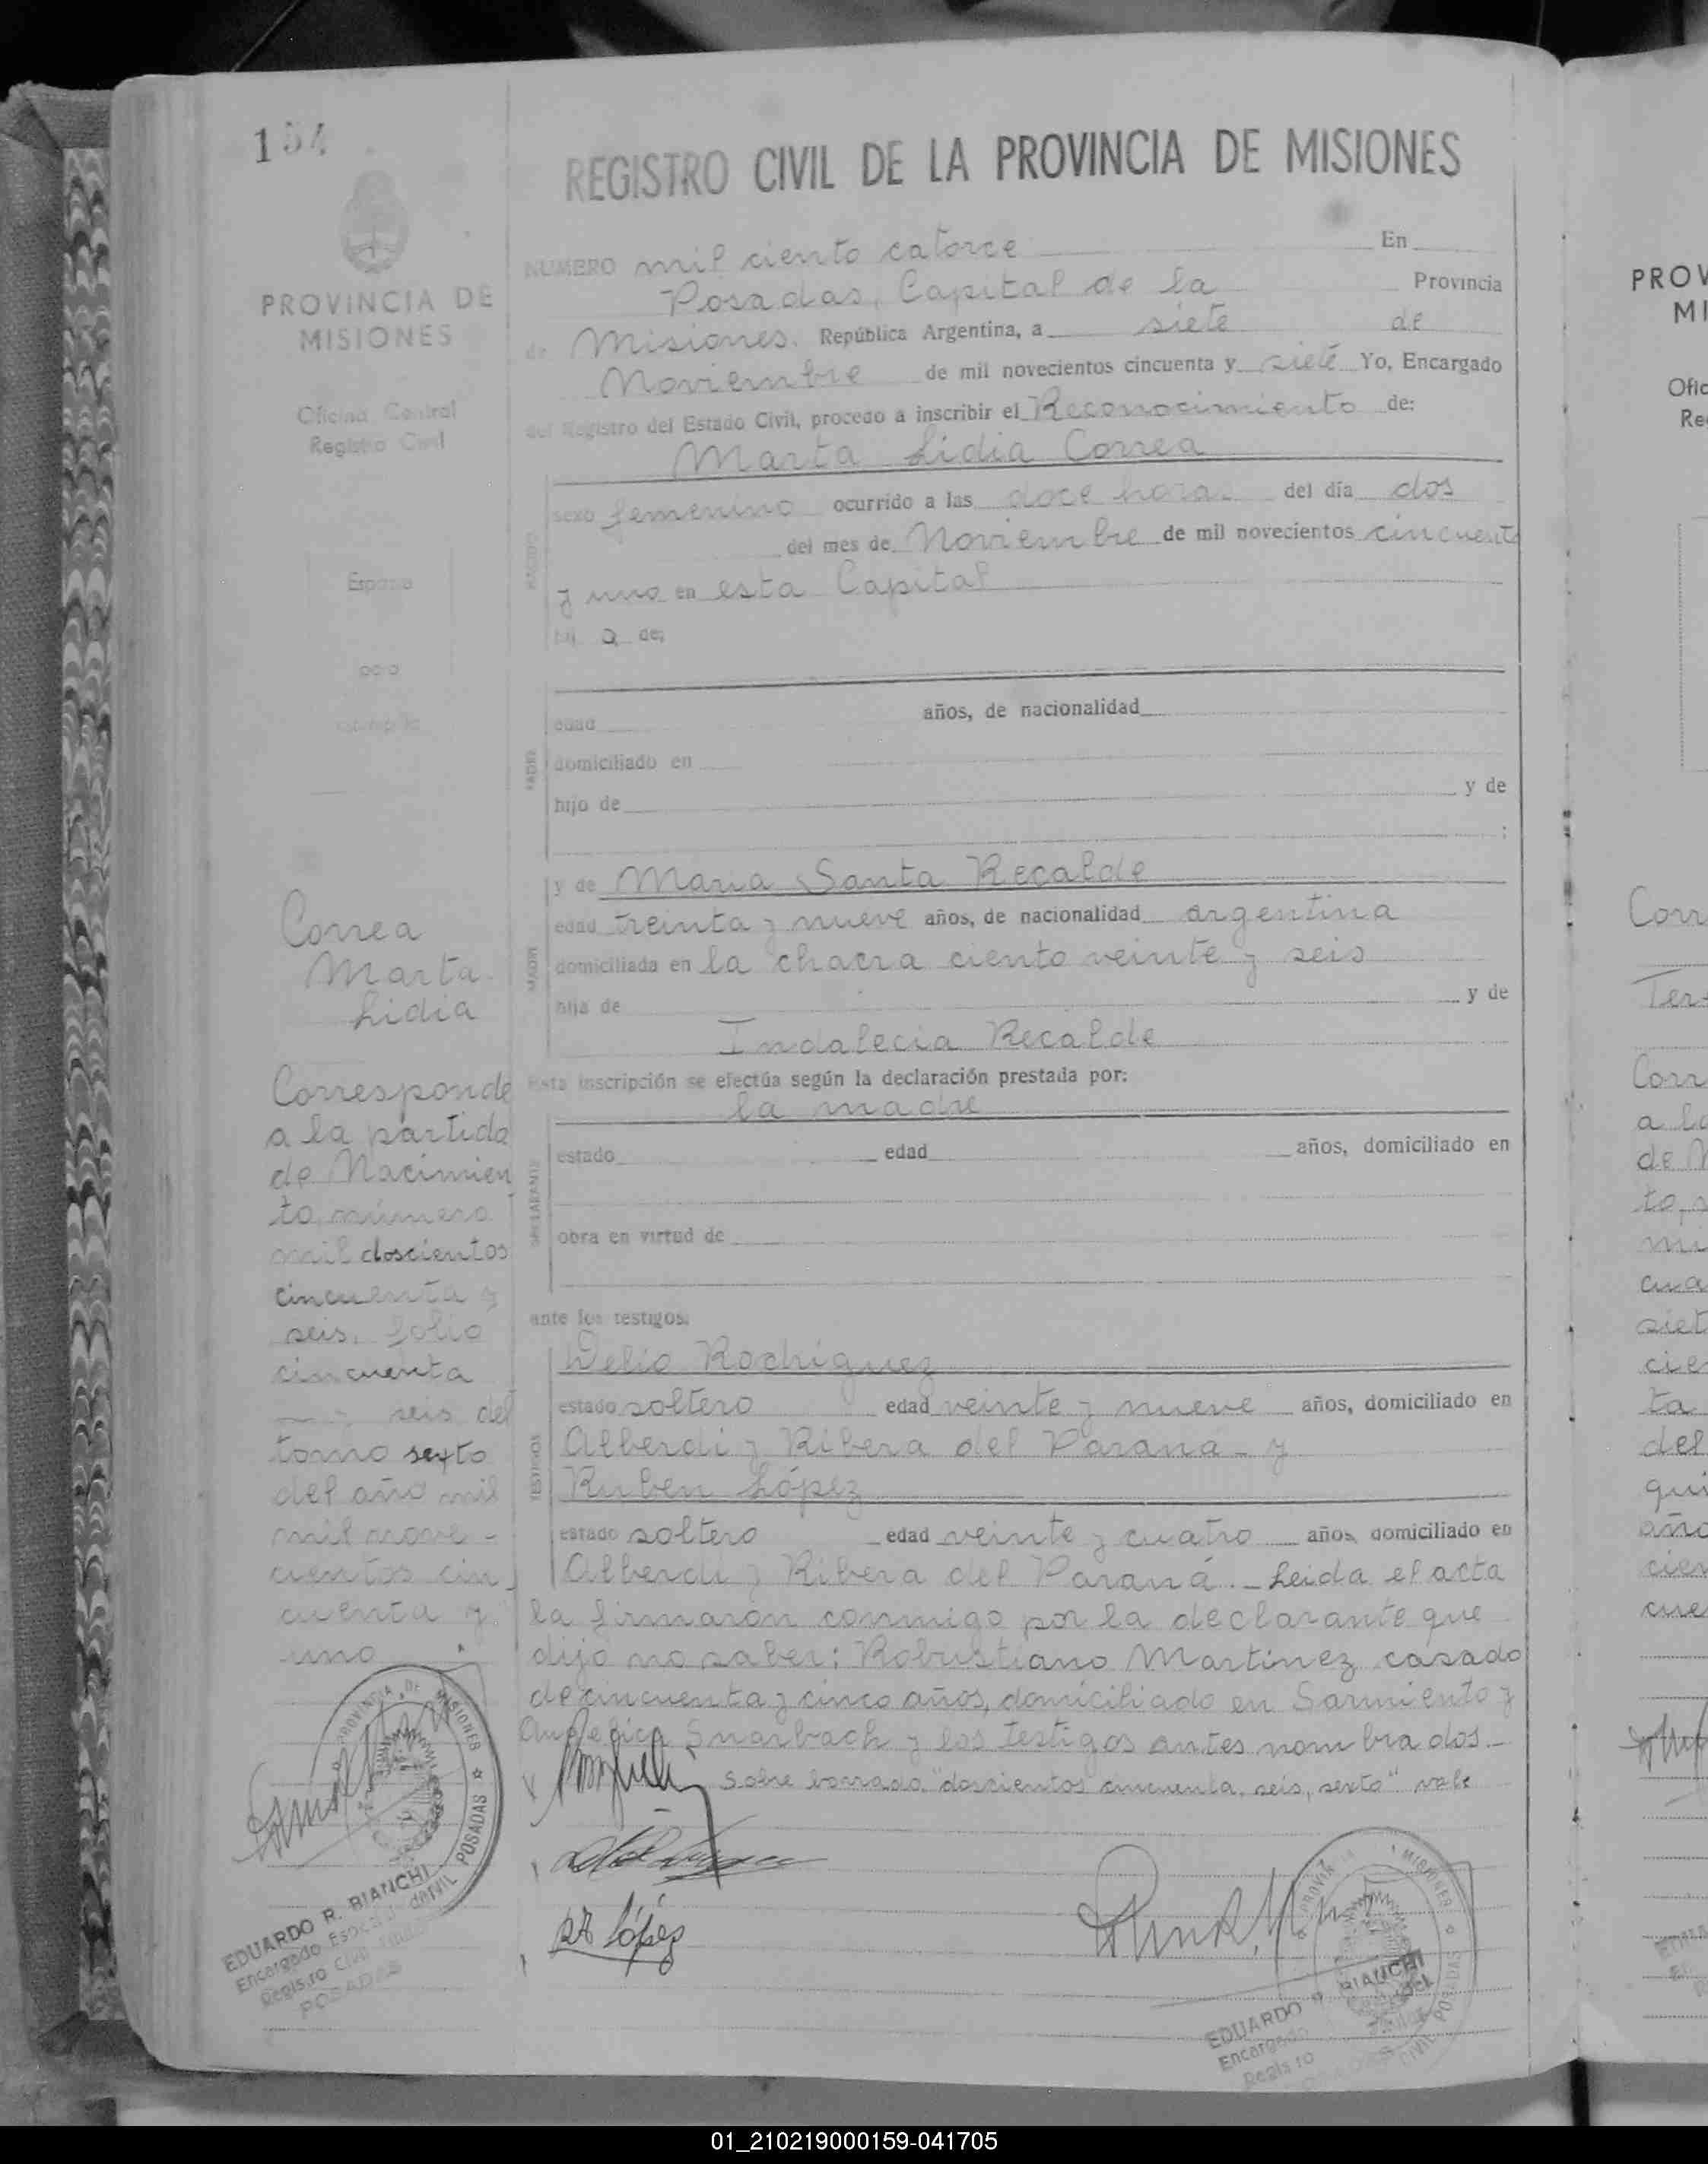 154
REGISTRO CIVIL DE LA PROVINCIA DE MISIONES
PROVINCIA DE
MISIONES
Oficina Central
Registro Civil
NUMERO mil ciento catorce En
Posadas, Capital de la Provincia
de Misiones. República Argentina, a siete de
Noviembre de mil novecientos cincuenta y siete Yo, Encargado
del Registro del Estado Civil, procedo a inscribir el Reconocimiento de:
Marta Lidia Correa
sexo femenino ocurrido a las doce horas del día dos
del mes de Noviembre de mil novecientos cincuenta
y uno en esta Capital
hij a de:
Espacio
para
estampilla
PADRE
edad años, de nacionalidad
domiciliado en
hijo de y de
;
MADRE
y de Maria Santa Recalde
edad treinta y nueve años, de nacionalidad argentina
domiciliada en la chacra ciento veinte y seis
hija de y de
Indalecia Recalde
Esta inscripción se efectúa según la declaración prestada por:
la madre
DECLARANTE
estado edad años, domiciliado en
obra en virtud de
ante los testigos:
TESTIGOS
Delio Rodriguez
estado soltero edad veinte y nueve años, domiciliado en
Alberdi y Ribera del Parana - y
Ruben López
estado soltero edad veinte y cuatro años, domiciliado en
Alberdi y Ribera del Paraná. - Leida el acta
la firmaron conmigo por la declarante que
dijo no saber: Robustiano Martinez casado
de cincuenta y cinco años, domiciliado en Sarmiento y
Angelica y los testigos antes nombrados. -
Sobre borrado "doscientos cincuenta, seis, sexto" vale
López
Correa
Marta
Lidia
Corresponde
a la partida
de Nacimien
to número
mil doscientos
cincuenta y
seis, folio
cincuenta
y seis del
tomo sexto
del año mil
mil nove-
cientos cin
cuenta y
uno
PROVINCIA DE MISIONES
POSADAS
EDUARDO R. BIANCHI
Encargado
Registro Civil
POSADAS
PROVINCIA MISIONES
POSADAS
EDUARDO R. BIANCHI
Encargado
Registro
PROV
MI
Ofic
Re
Corr
Ter
Corr
a la
de N
to,
mi
cua
siet
cien
ta
del
qui
año
cien
cue
01_210219000159-041705